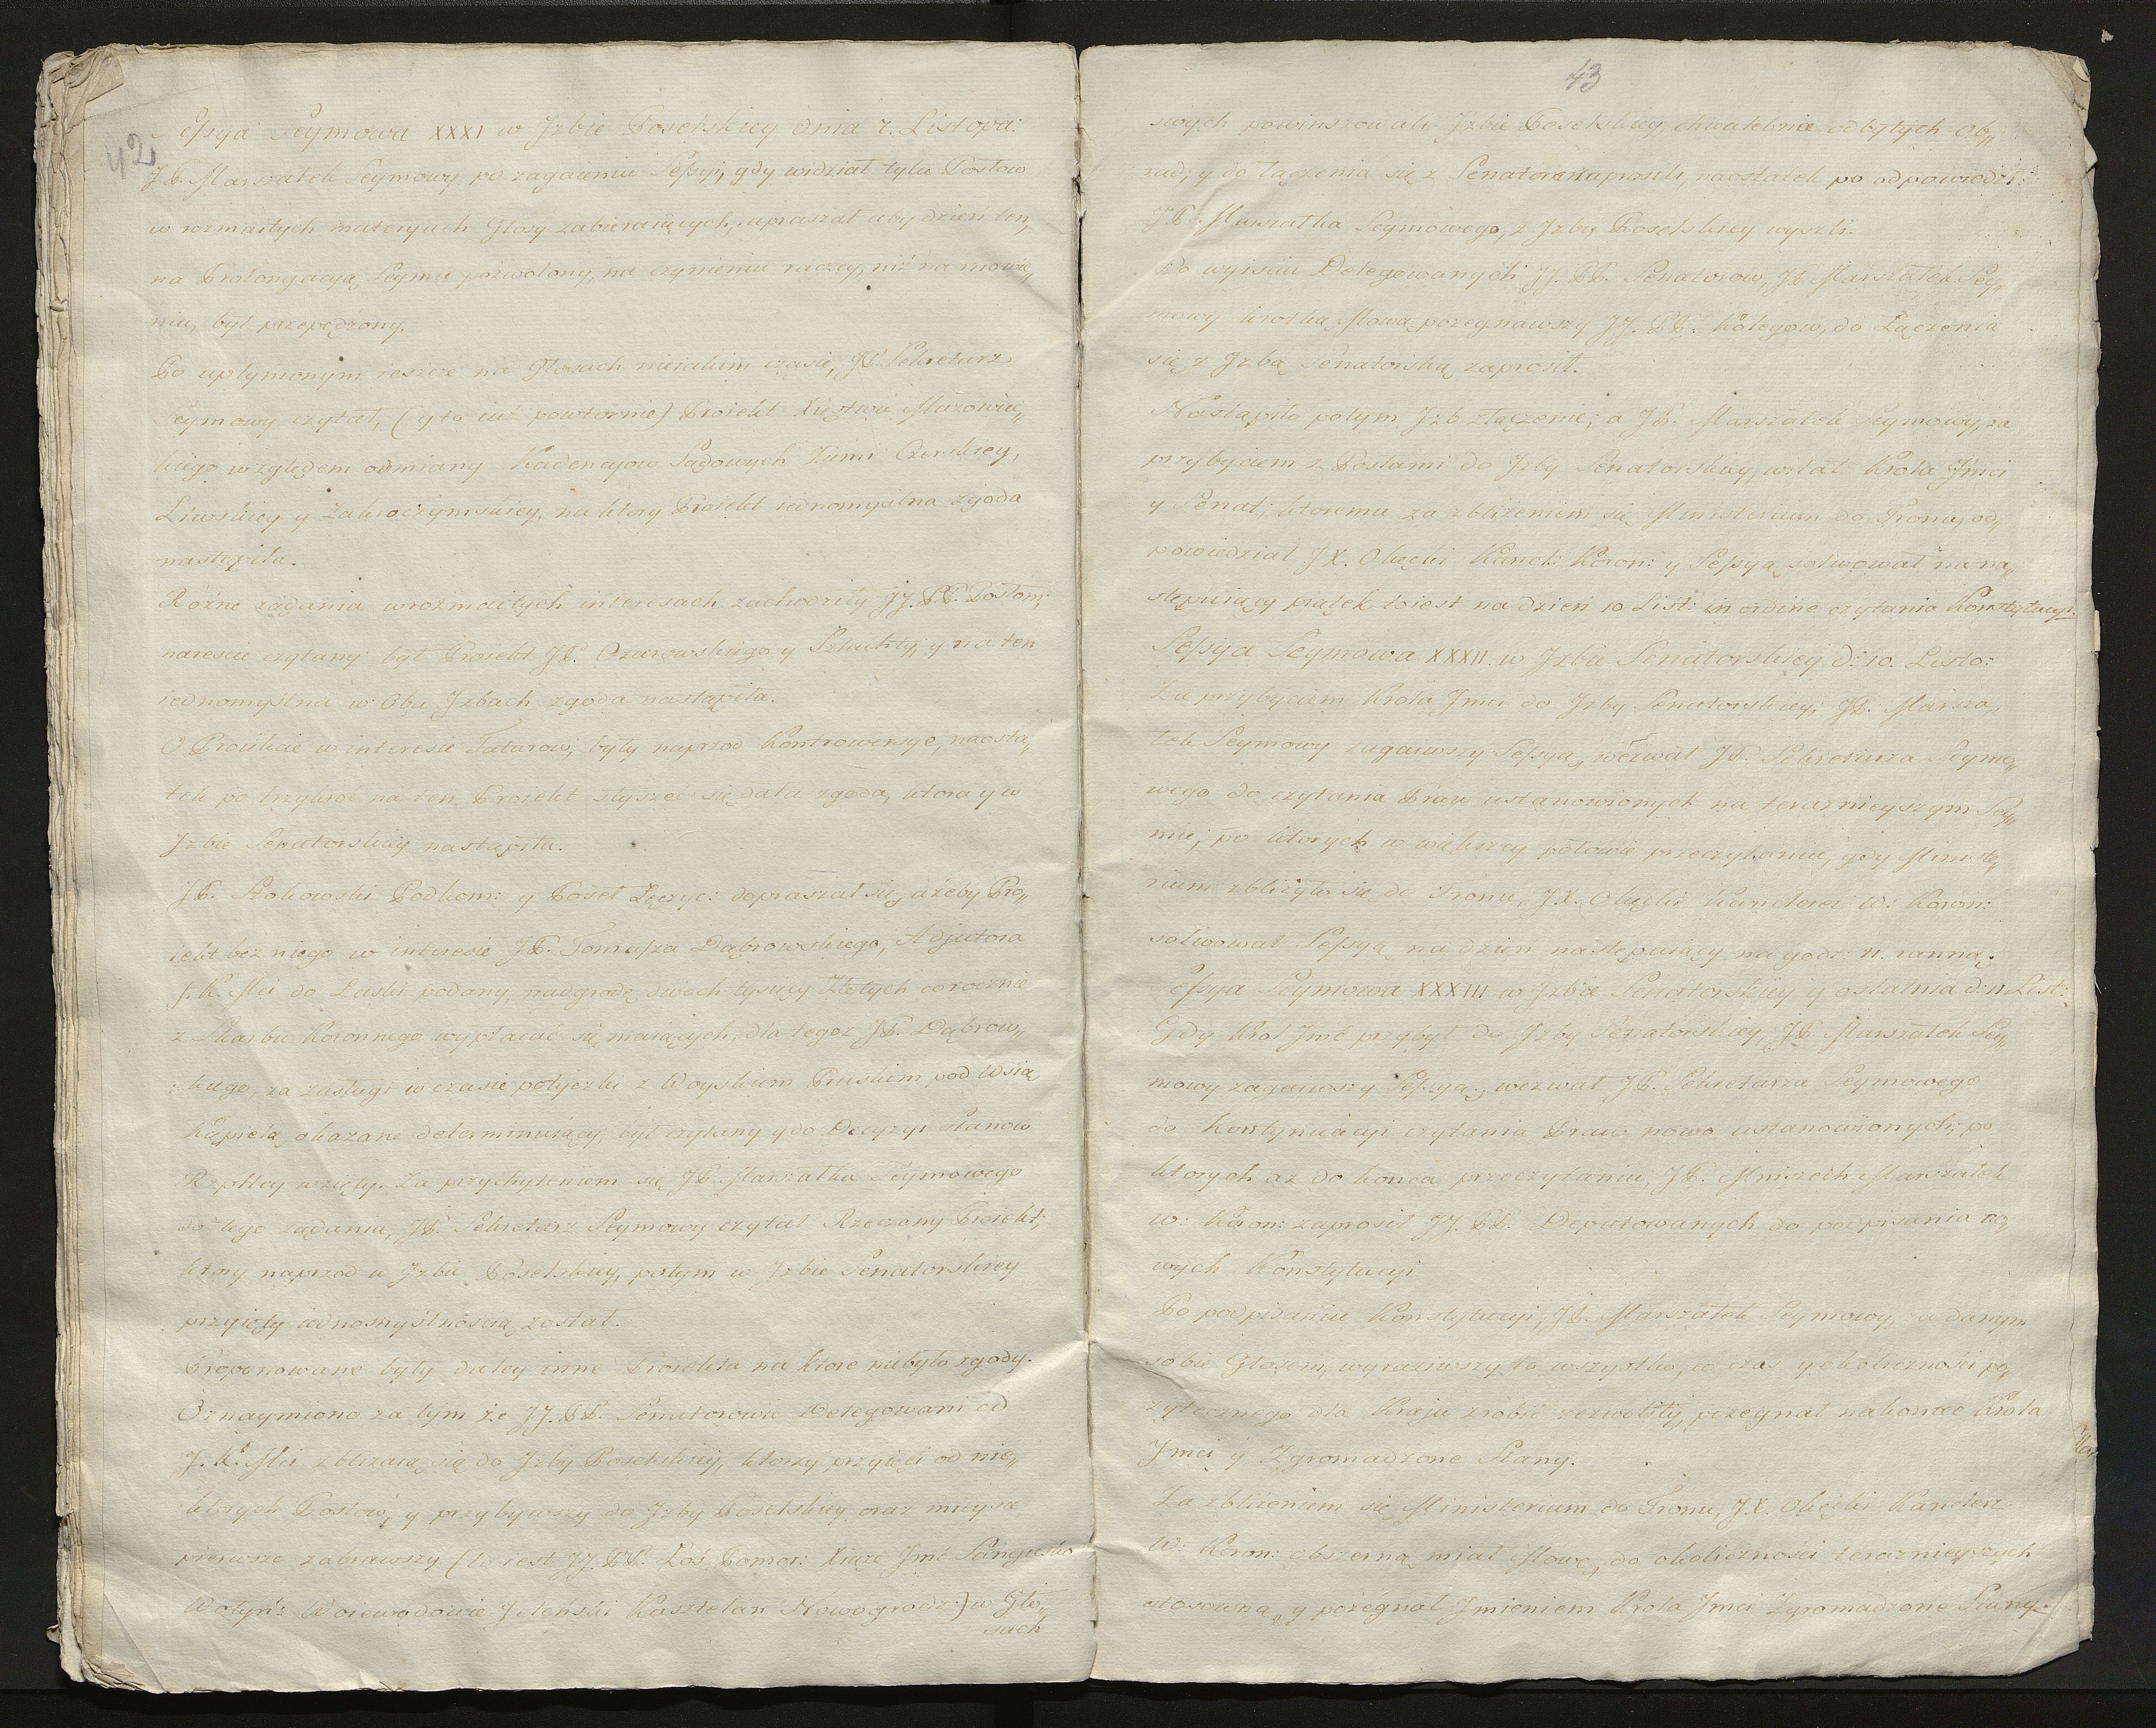 42
Sessya Seymowa XXXI w Jzbie Poselskiey dnia 7. Listopa:
JP. Marszałek Seymowy po zagaieniu Sessyi, gdy widział tylu Posłow
w rozmaitych materyach Głosy zabieraiących, upraszał aby dzień ten,
na Prolongacyą Seymu pozwolony, na czynieniu raczey, niż na mowie„
niu, był przepędzony.
Po upłynionym ieszcze na Głosach nieiakim czasie, JP. Sekretarz
Seymowy czytał, (y to iuż powtornie) Proiekt Xięstwa Mazowiec„
kiego względem odmiany Kadencyow Sądowych Ziemi Czerskiey,
Liwskiey y Zakroczymskiey, na ktory Proiekt iednomyślna zgoda
nastąpiła.
Rożne żądania w rozmaitych interesach zachodziły JJ. PP. Posłom;
nareście czytany był Proiekt JP. Ożarowskiego y Szluchty, y na ten
iednomyślna w Obu Jzbach zgoda nastąpiła.
O Proiekcie w interesie Tatarow, były naprzod Kontrowersye, naosta„
tek po trzykroć na ten Proiekt słyszeć się dała zgoda, ktora y w
Jzbie Senatorskiey nastąpiła.
JP. Stokowski Podkom: y Poseł Łęczyc: dopraszał się, ażeby Pro„
iekt bez niego w interesie JP. Tomasza Dąbrowskiego, Adjutora
J. K. Mci do Laski podany, nadgrodę dwoch tysięcy Złotych corocznie
z Skarbu Koronnego wypłacać się maiących, dla tegoż JP. Dąbrow„
skiego, za zasługi w czasie potyczki z Woyskiem Pruskim pod Wsią
Kąpiela okazane determinuiący, był czytany y do Decyzyi Stanow
Rzpltey wzięty. Za przychyleniem się JP. Marszałka Seymowego
do tego żądania, JP. Sekretarz Seymowy czytał Rzeczony Proiekt,
ktory naprzod w Jzbie Poselskiey, potym w Jzbie Senatorskiey
przyięty iednomyślnością został.
Proponowane były daley inne Proiekta na ktore niebyło zgody.
Oznaymiono za tym że JJ. PP. Senatorowie Delegowani od
J. K. Mci zbliżaią się do Jzby Poselskiey, ktorzy przyięci od nie„
ktorych Posłow, y przybywszy do Jzby Poselskiey oraz mieysce
pierwsze zabrawszy (to iest JJ. PP. Łoś Pomor: Xiąże Jmć Sanguszko
Wołyń: Woiewodowie Jeleński Kasztelan Nowogrodz:) w Gło„
sach
43
swych powinszowali Jzbie Poselskiey chwalebnie odbytych Ob„
rad, y do łączenia się z Senatorami zaprosili, naostatek po odpowiedzi
JP. Marszałka Seymowego, z Jzby Poselskiey wyszli.
Po wyiściu Delegowanych JJ. PP. Senatorow, JP. Marszałek Sey„
mowy krotką Mową pożegnawszy JJ. PP. Kolegow, do Łączenia
się z Jzbą Senatorską zaprosił.
Nastąpiło potym Jzb złączenie; a JP. Marszałek Seymowy, za
przybyciem z Posłami do Jzby Senatorskiey, witał Krola Jmci
y Senat, ktoremu za zbliżeniem się Ministerium do Tronu, od„
powiedział JX. Okęcki Kancl: Koron: y Sessyą solwował na na„
stępuiący piątek to iest na dzień 10 List: in ordine czytania Konstytucyi.
Sessya Seymowa XXXII. w Jzbie Senatorskiey d: 10. Listo:
Za przybyciem Krola Jmci do Jzby Senatorskiey, JP. Marsza„
łek Seymowy zagaiwszy Sessyą, wezwał JP. Sekretarza Seymo„
wego do czytania Praw ustanowionych na teraznieyszym Sey„
mie, po ktorych w większey połowie przeczytaniu, gdy Ministe„
rium zbliżyło się do Tronu, JX. Okęcki Kanclerz W: Koron:
solwował Sessyą na dzień następuiący na godz: 11. ranną.
Sessya Seymowa XXXIII w Jzbie Senatorskiey y ostatnia d: 11 List:
Gdy Krol Jmć przybył do Jzby Senatorskiey, JP. Marszałek Sey„
mowy zagaiwszy Sessyą, wezwał JP. Sekretarza Seymowego
do Kontynuacyi czytania Praw nowo ustanowionych; po
ktorych aż do końca przeczytaniu, JP. Mniszech Marszałek
W: Koron: zaprosił JJ. PP. Deputowanych do podpisania no„
wych Konstytucyi
Po podpisaniu Konstytucyi, JP. Marszałek Seymowy, za danym
sobie Głosem, wyraziwszy to wszystko, co czas y okoliczności po„
żytecznego dla Kraju zrobić zezwoliły, pożegnał nakoniec Krola
Jmci y Zgromadzone Stany.
Za zbliżeniem się Ministerium do Tronu, JX. Okęcki Kanclerz
W: Koron: obszerną miał Mowę, do okoliczności teraznieyszych
stosowną, y pożegnał Jmieniem Krola Jmci Zgromadzone Stany.